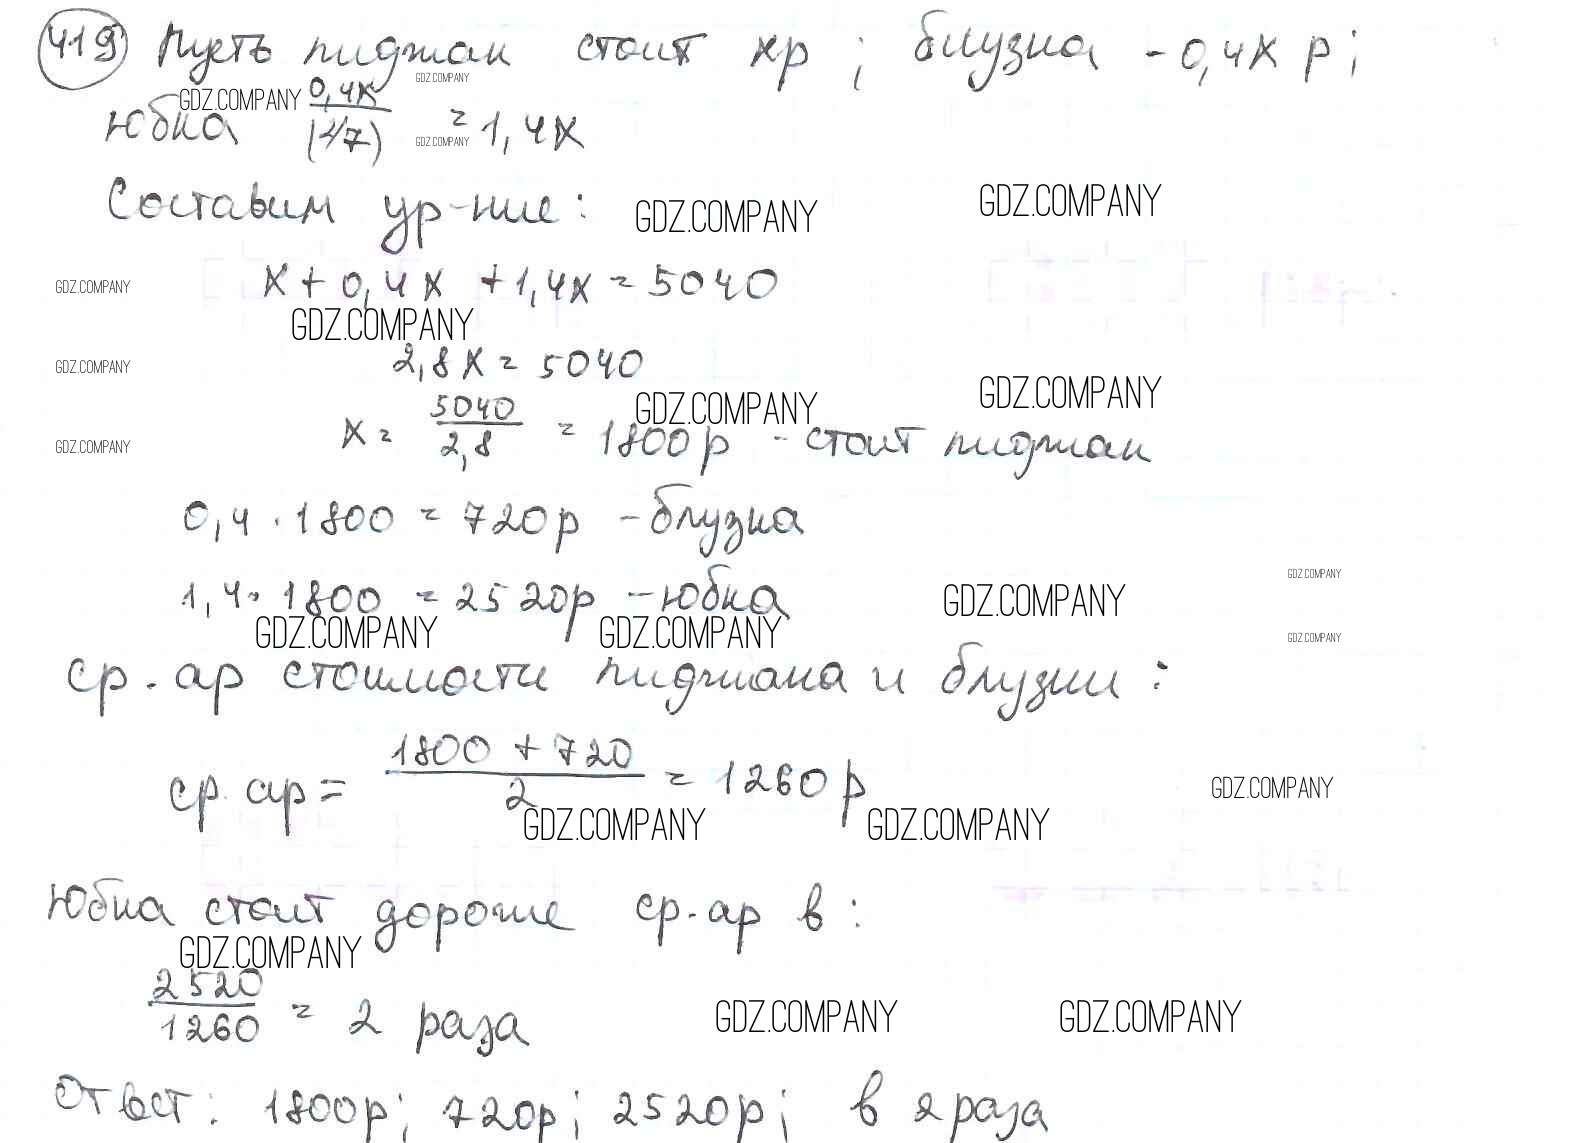 419 Пусть пиджак стоит xр; блузка - 0,4x р;
GDZ.COMPANY GDZ.COMPANY
юбка 0,4x/(2/7) = 1,4x
GDZ.COMPANY
Составим ур-ние:
GDZ.COMPANY GDZ.COMPANY
GDZ.COMPANY x + 0,4x + 1,4x = 5040
GDZ.COMPANY
GDZ.COMPANY 2,8x = 5040
GDZ.COMPANY GDZ.COMPANY
GDZ.COMPANY x = 5040/2,8 = 1800р - стоит пиджак
0,4 · 1800 = 720р - блузка
GDZ.COMPANY
1,4 · 1800 = 2520р - юбка GDZ.COMPANY
GDZ.COMPANY GDZ.COMPANY GDZ.COMPANY
ср. ар стоимости пиджака и блузки:
ср. ар = 1800 + 720/2 = 1260р GDZ.COMPANY
GDZ.COMPANY GDZ.COMPANY
Юбка стоит дороже ср. ар в:
GDZ.COMPANY
2520/1260 = 2 раза GDZ.COMPANY GDZ.COMPANY
Ответ: 1800р; 720р; 2520р; в 2 раза